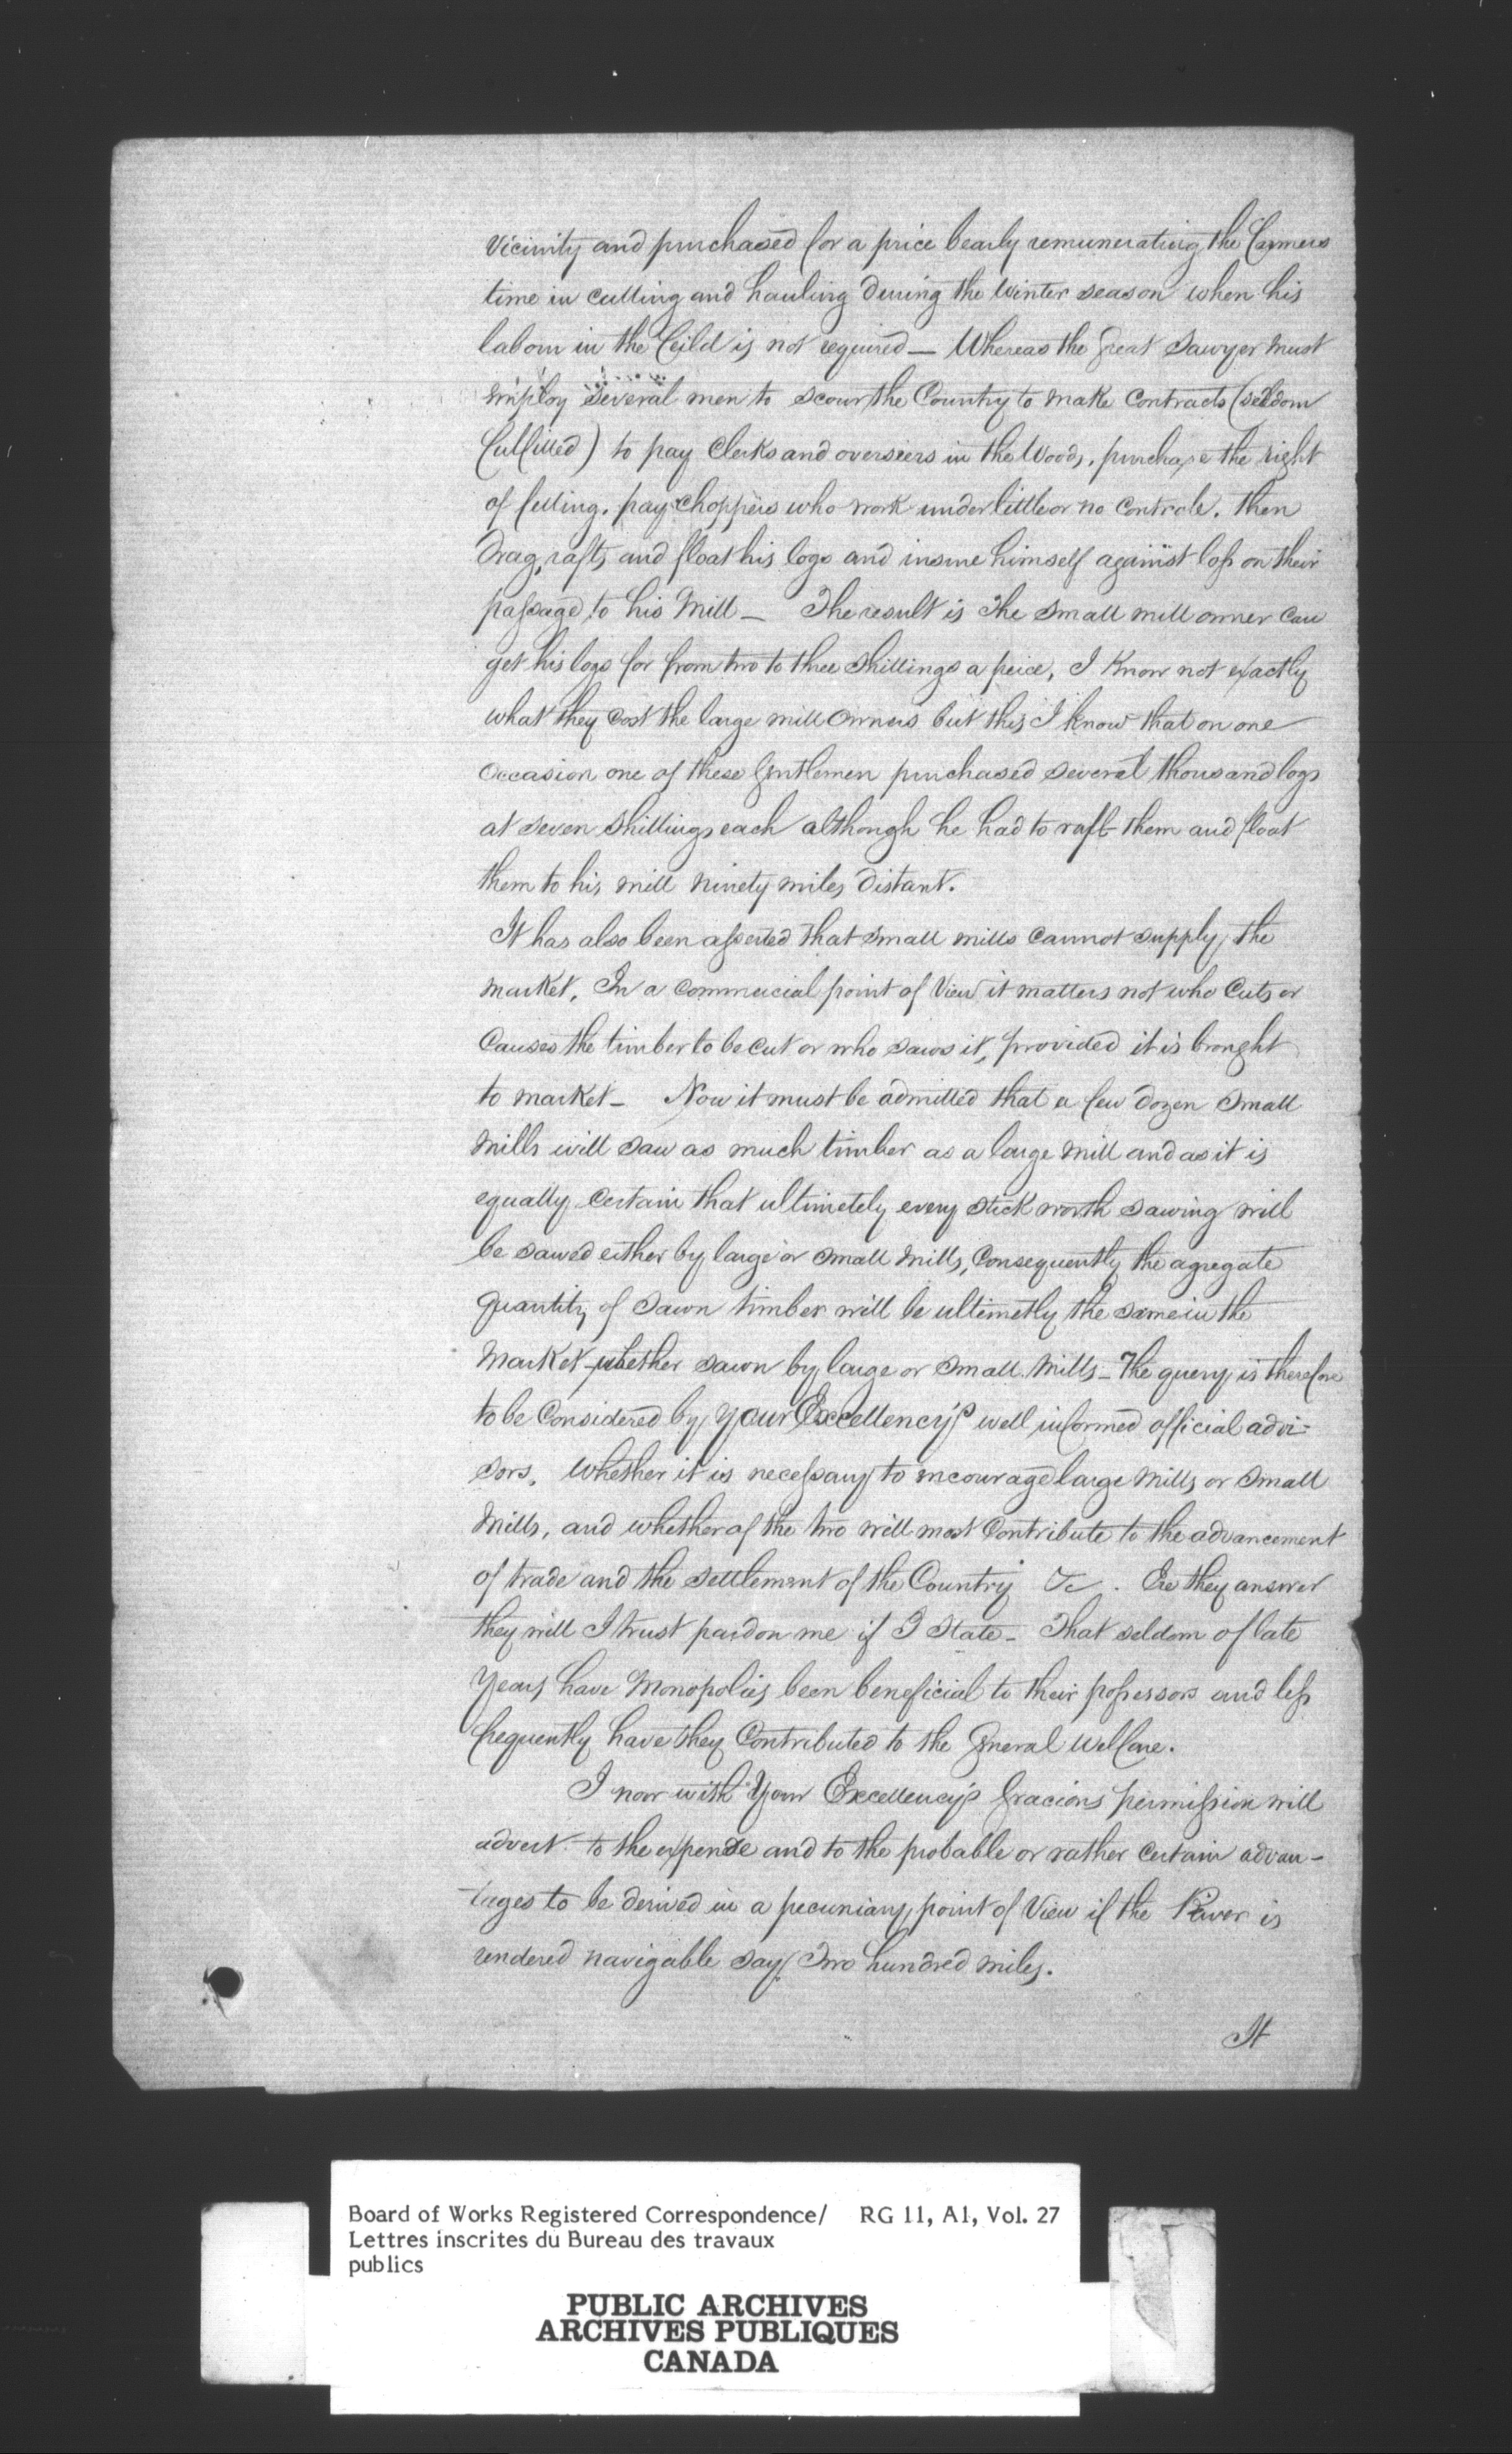 Vicinity and purchased for a price bearly remunerating the Farmers
time in cutting and hauling during the Winter season when his
labour in the feild is not required — Whereas the great Sawyer must
employ several men to scour the Country to make Contracts (seldom
fulfilled) to pay Clerks and overseers in the Woods, purchase the right
of felling. pay choppers who work under little or no controle. Then
Drag, raft, and float his logs and insure himself against loss on their
passage to his Mill — The result is The Small mill owner can
get his logs for from two to three shillings a peice, I Know not exactly
what they cost the large mill owners but this I know that on one
Occasion one of these Gentlemen purchased several thousand logs
at seven shillings each although he had to raft them and float
them to his mill ninety miles distant.
It has also been asserted that small mills cannot supply the
market, In a commercial point of View it matters not who Cuts or
Causes the timber to be cut or who saws it, provided it is brought
to market — Now it must be admitted that a few dozen small
mills will saw as much timber as a large mill and as it is
equally Certain that ultimetely every stick worth sawing will
be sawed either by large or small mills, Consequently the agregate
quantity of Sawn timber will be ultimetly the same in the
Market whether sawn by large or small Mills — The query is therefore
to be Considered by your Excellency's well informed official advi-
sors. Whether it is necessary to incourage large Mills or small
Mills, and whether of the two will most Contribute to the advancement
of trade and the settlement of the Country &c. Ere they answer
they will I trust pardon me if I State — That seldom of late
Years have Monopolies been beneficial to their possessors and less
frequently have they Contributed to the General Welfare.
I now with Your Excellency's Gracious permission will
advert to the expense and to the probable or rather Certain advan-
tages to be derived in a pecuniary point of View if the River is
rendered navigable say Two hundred miles.
It
Board of Works Registered Correspondence/ RG 11, A1, Vol. 27
Lettres inscrites du Bureau des travaux
publics
PUBLIC ARCHIVES
ARCHIVES PUBLIQUES
CANADA